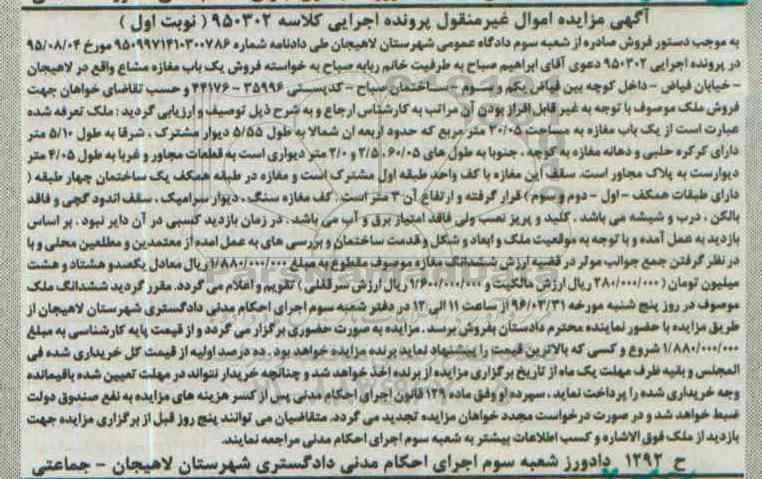 آگهی مزایده اموال غیرمنقول پرونده اجرایی کلاسه ۹۵۰۳۰۲ ( نوبت اول )
به موجب دستور فروش صادره از شعبه سوم دادگاه عمومی شهرستان لاهیجان طی دادنامه شماره ۹۵۰۹۹۷۱۴۱۰۳۰۰۷۸۶ مورخ ۹۵/۰۸/۰۴
در پرونده اجرایی ۹۵۰۳۰۲ دعوی آقای ابراهیم صباح به طرفیت خانم ربابه صباح به خواسته فروش یک باب مغازه مشاع واقع در لاهیجان
- خیابان فیاض - داخل کوچه بین فیاض یکم و سوم - ساختمان صباح - کدپستی ۳۵۹۹۶ - ۴۴۱۷۶ و حسب تقاضای خواهان جهت
فروش ملک موصوف با توجه به غیر قابل افراز بودن آن مراتب به کارشناس ارجاع و به شرح ذیل توصیف و ارزیابی گردید : ملک تعرفه شده
عبارت است از یک باب مغازه به مساحت ۳۰/۰۵ متر مربع که حدود اربعه ان شمالا به طول ۵/۵۵ دیوار مشترک ، شرقا به طول ۵/۱۰ متر
دارای کرکره حلبی و دهانه مغازه به کوچه ، جنوبا به طول های ۶۰/۰۵، ۲/۵ و ۲/۰ متر دیواری است به قطعات مجاور و غربا به طول ۴/۰۵ متر
دیواریست به پلاک مجاور است. سقف این مغازه با کف واحد طبقه اول مشترک است و مغازه در طبقه همکف یک ساختمان چهار طبقه (
دارای طبقات همکف - اول - دوم و سوم ) قرار گرفته و ارتفاع آن ۳ متر است . کف مغازه سنگ ، دیوار سرامیک ، سقف اندود گچی و فاقد
بالکن ، درب و شیشه می باشد . کلید و پریز نصب ولی فاقد امتیاز برق و آب می باشد . در زمان بازدید کسبی در آن دایر نبود . بر اساس
بازدید به عمل آمده و با توجه به موقعیت ملک و ابعاد و شکل و قدمت ساختمان و بررسی های به عمل امده از معتمدین و مطلعین محلی و با
در نظر گرفتن جمع جوانب موثر در قضیه ارزش ششدانگ مغازه موصوف مقطوع به مبلغ ۱/۸۸۰/۰۰۰/۰۰۰ ریال معادل یکصدو هشتاد و هشت
میلیون تومان ( ۲۸۰/۰۰۰/۰۰۰ ریال ارزش مالکیت و ۱/۶۰۰/۰۰۰/۰۰۰ ریال ارزش سرقفلی ) تقویم و اعلام می گردد. مقرر گردید ششدانگ ملک
موصوف در روز پنج شنبه مورخه ۹۶/۰۳/۳۱ از ساعت ۱۱ الی ۱۲ در دفتر شعبه سوم اجرای احکام مدنی دادگستری شهرستان لاهیجان از
طریق مزایده با حضور نماینده محترم دادستان بفروش برسد . مزایده به صورت حضوری برگزار می گردد و از قیمت پایه کارشناسی به مبلغ
۱/۸۸۰/۰۰۰/۰۰۰ شروع و کسی که بالاترین قیمت را پیشنهاد نماید برنده مزایده خواهد بود . ده درصد اولیه از قیمت کل خریداری شده فی
المجلس و بقیه ظرف مهلت یک ماه از تاریخ برگزاری مزایده از برنده اخذ خواهد شد و چنانچه خریدار نتواند در مهلت تعیین شده باقیمانده
وجه خریداری شده را پرداخت نماید ، سپرده او وفق ماده ۱۲۹ قانون اجرای احکام مدنی پس از کسر هزینه های مزایده به نفع صندوق دولت
ضبط خواهد شد و در صورت درخواست مجدد خواهان مزایده تجدید می گردد. متقاضیان می توانند پنج روز قبل از برگزاری مزایده جهت
بازدید از ملک فوق الاشاره و کسب اطلاعات بیشتر به شعبه سوم اجرای احکام مدنی مراجعه نمایند.
ح ۱۲۹۲ دادورز شعبه سوم اجرای احکام مدنی دادگستری شهرستان لاهیجان - جماعتی
ParsNamadData